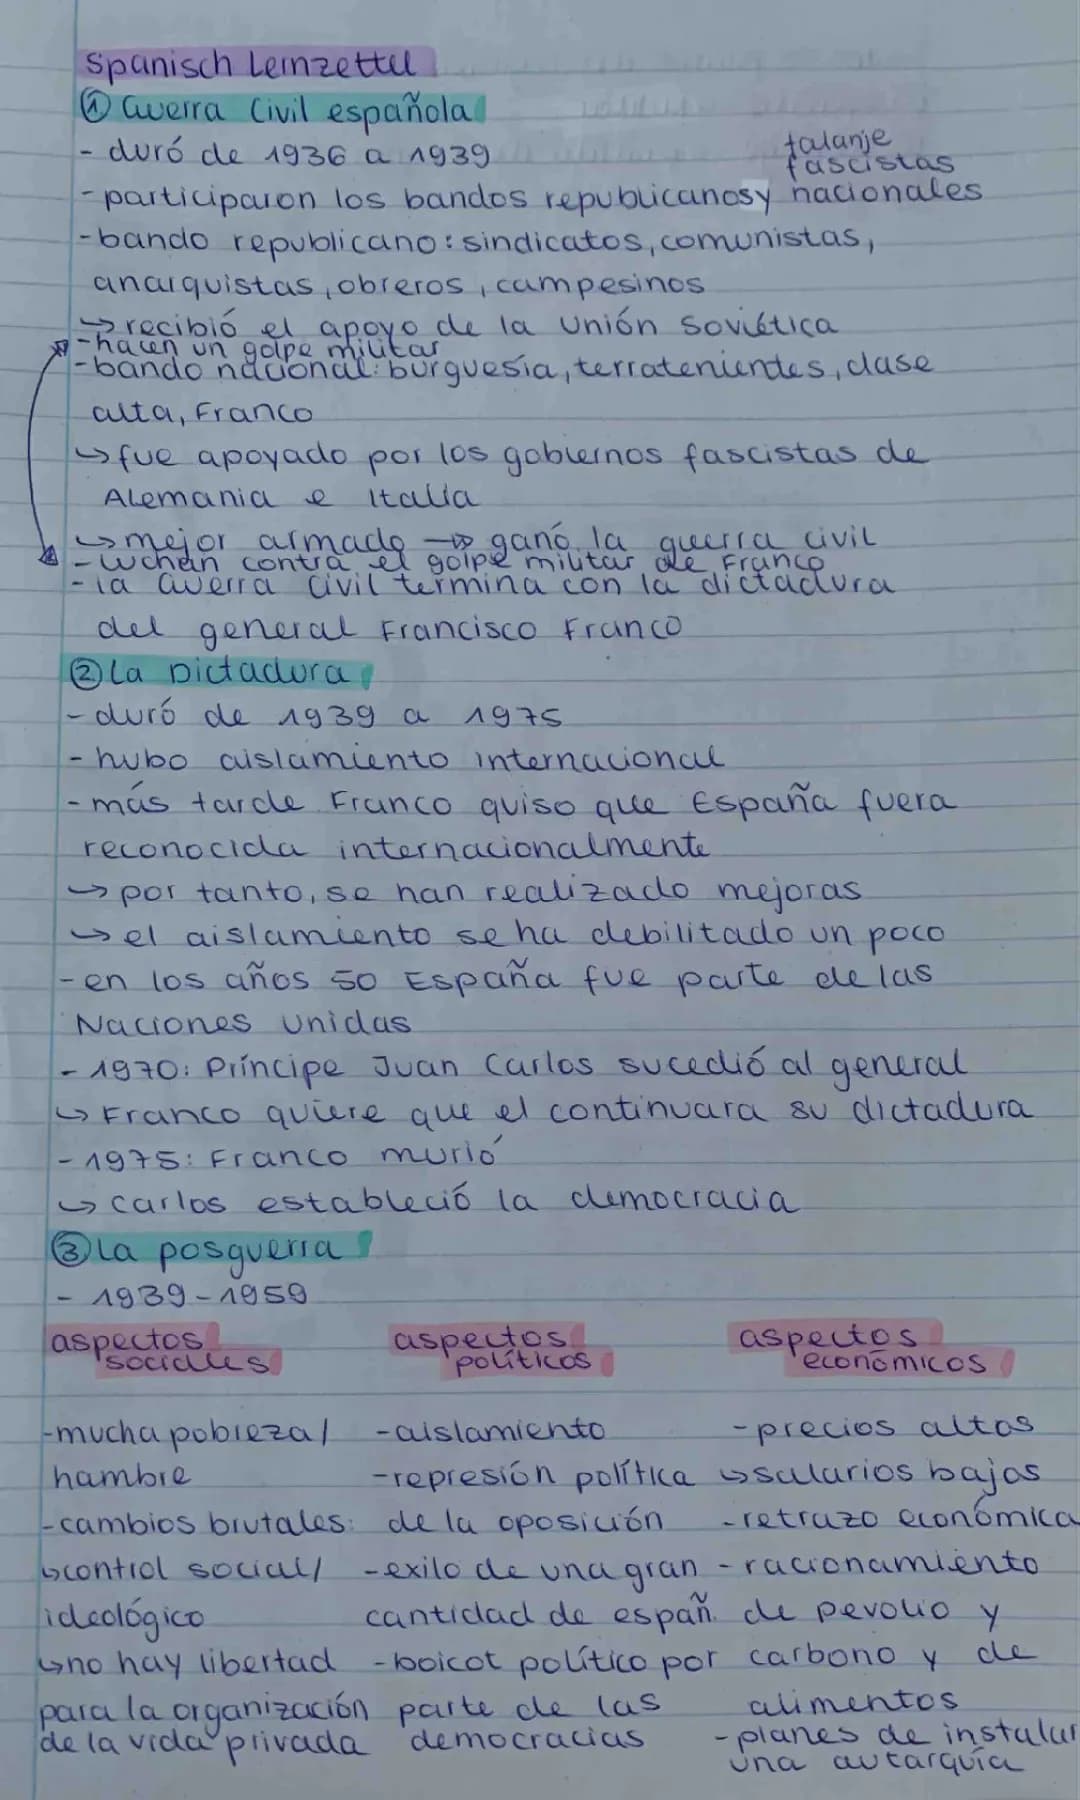 Spanisch Lernzettel
① Guerra Civil española
- duró de 1936 a 1939
falanje
fascistas
- participaron los bandos republicanos y nacionales
- bando republicano: sindicatos, comunistas,
anarquistas, obreros, campesinos
↳ recibió el apoyo de la Unión Soviética
- hacen un golpe militar
- bando nacional: burguesía, terratenientes, clase
alta, Franco
↳ fue apoyado por los gobiernos fascistas de
Alemania e Italia
↳ mejor armado → ganó la guerra civil
- luchan contra el golpe militar de Franco
- la Guerra Civil termina con la dictadura
del general Francisco Franco
② La Dictadura
- duró de 1939 a 1975
- hubo aislamiento internacional
- más tarde Franco quiso que España fuera
reconocida internacionalmente
↳ por tanto, se han realizado mejoras
↳ el aislamiento se ha debilitado un poco
- en los años 50 España fue parte de las
Naciones unidas
- 1970: Príncipe Juan Carlos sucedió al general
↳ Franco quiere que el continuara su dictadura
- 1975: Franco murió
↳ Carlos estableció la democracia
③ La posguerra
- 1939-1959
aspectos sociales
- mucha pobreza /
hambre
- cambios brutales:
↳ control social/
ideológico
↳ no hay libertad
para la organización
de la vida privada
aspectos políticos
- aislamiento
- represión política
de la oposición
- exilo de una gran
cantidad de españ.
- boicot político por
parte de las
democracias
aspectos económicos
- precios altos
↳ salarios bajos
- retrazo económica
- racionamiento
de pevolio y
carbono y de
alimentos
- planes de instalar
una autarquía